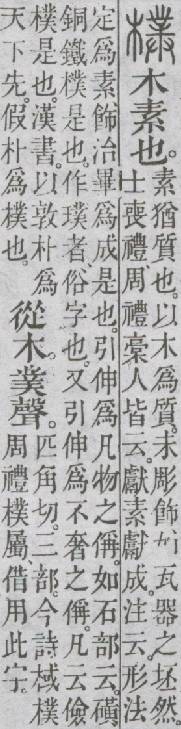 樸 木素也。
素猶質也。以木爲質。未彫飾如瓦器之坯然。
士喪禮、周禮槀人皆云。獻素獻成。注云。形法
定爲素。飾治畢爲成是也。引伸爲凡物之偁。如石部云。磺、
銅鐵樸是也。作璞者、俗字也。又引伸爲不奢之偁。凡云儉
樸是也。漢書以敦朴爲
天下先。假朴爲樸也。
從木。菐聲。
匹角切。三部。今詩棫樸
周禮樸屬、借用此字。